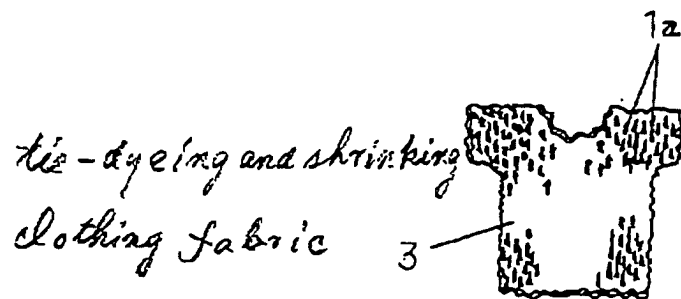 1a
tie-dyeing and shrinking
clothing fabric 3